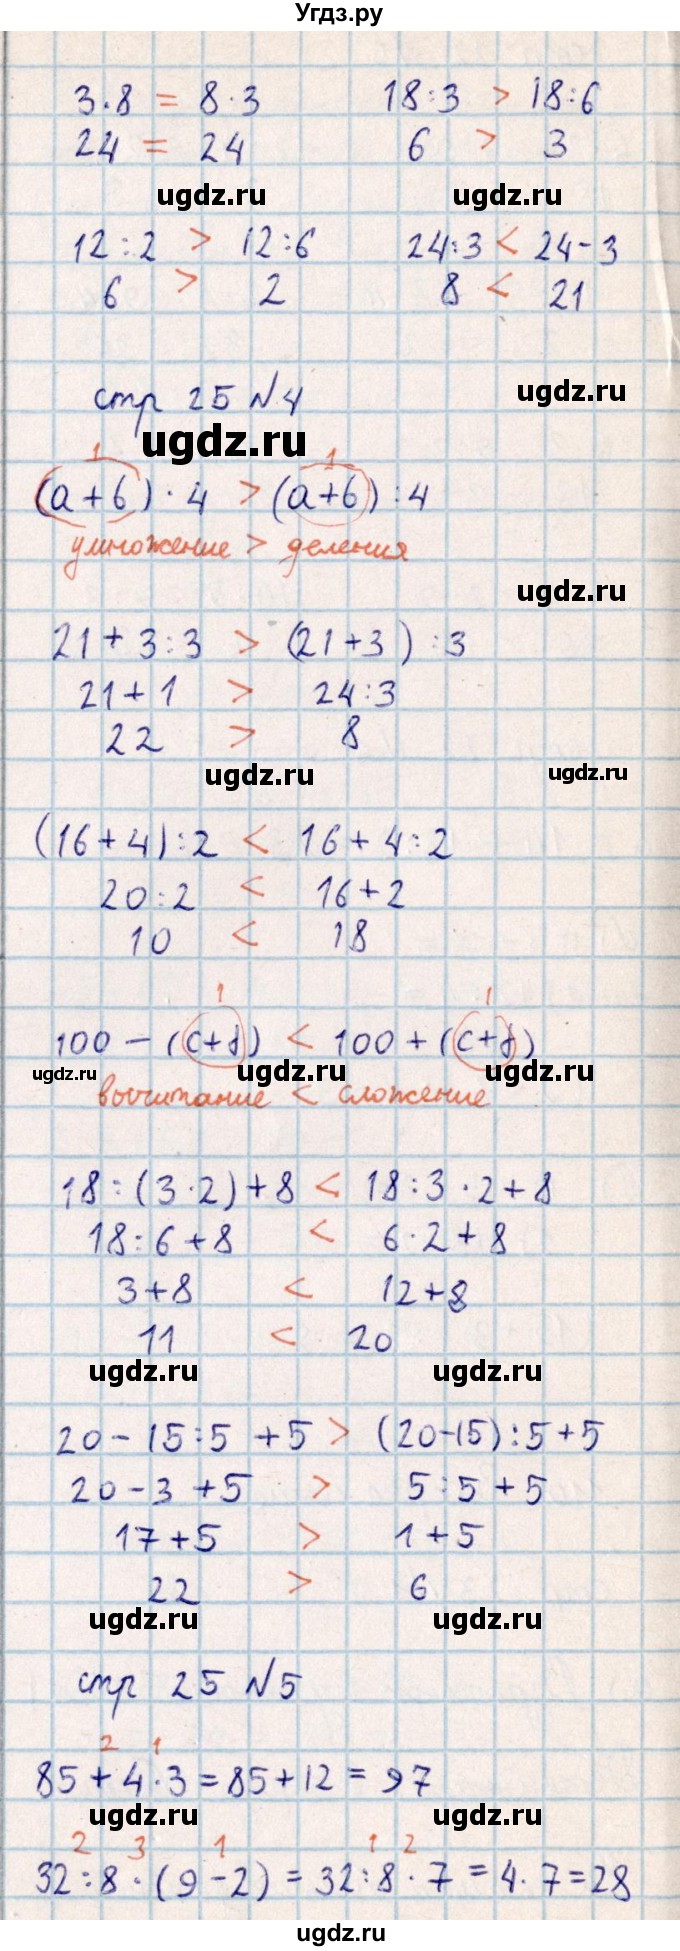 Угдз.ру
3·8 = 8·3    18:3 > 18:6
24 = 24    6 > 3
ugdz.ru    ugdz.ru
12:2 > 12:6    24:3 < 24-3
6 > 2    8 < 21
ugdz.ru
стр 25 №4
ugdz.ru
1    1
(а+б)·4 > (а+б):4
умножение > деления
ugdz.ru
21+3:3 > (21+3):3
21+1 > 24:3
22 > 8
ugdz.ru    ugdz.ru
(16+4):2 < 16+4:2
20:2 < 16+2
10 < 18
1    1
100-(c+d) < 100+(c+d)
ugdz.ru    ugdz.ru    ugdz.ru
вычитание < сложение
18:(3·2)+8 < 18:3·2+8
18:6+8 < 6·2+8
3+8 < 12+8
11 < 20
ugdz.ru    ugdz.ru
20-15:5+5 > (20-15):5+5
20-3+5 > 5:5+5
17+5 > 1+5
22 > 6
ugdz.ru    ugdz.ru
стр 25 №5
2    1
85+4·3=85+12=97
ugdz.ru    ugdz.ru
2    3    1    1    2
32:8·(9-2)=32:8·7=4·7=28
ugdz.ru